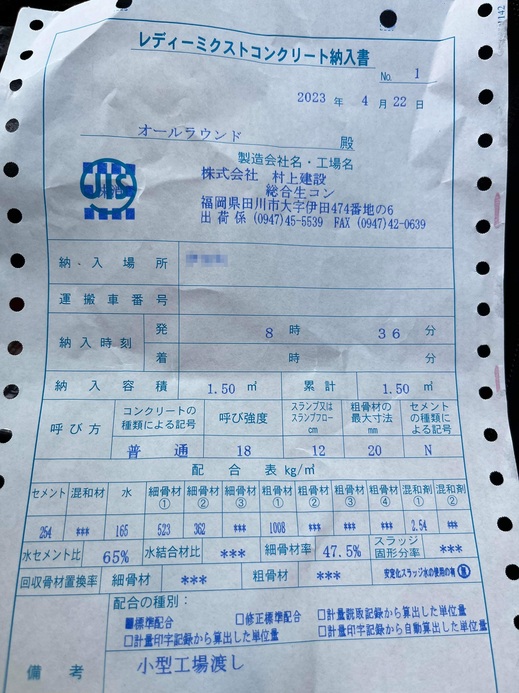 レディーミクストコンクリート納入書
No. 1
2023 年 4 月 22 日
オールラウンド 殿
製造会社名・工場名
JIS
株式会社 村上建設
総合生コン
福岡県田川市大字伊田474番地の6
出荷係 (0947)45-5539 FAX (0947)42-0639
納入場所
運搬車番号
納入時刻 発 8 時 36 分
着 時 分
納入容積 1.50 ㎥ 累計 1.50 ㎥
呼び方 コンクリートの種類による記号 呼び強度 スランプ又はスランプフロー cm 粗骨材の最大寸法 mm セメントの種類による記号
普通 18 12 20 N
配合表 kg/㎥
セメント 混和材 水 細骨材① 細骨材② 細骨材③ 粗骨材① 粗骨材② 粗骨材③ 粗骨材④ 混和剤① 混和剤②
254 *** 165 523 362 *** 1008 *** *** *** 2.54 ***
水セメント比 65% 水結合材比 *** 細骨材率 47.5% スラッジ固形分率 ***
回収骨材置換率 細骨材 *** 粗骨材 *** 安定化スラッジ水の使用の有 無
備考 配合の種別:
■標準配合 □修正標準配合 □計量読取記録から算出した単位量
□計量印字記録から算出した単位量 □計量印字記録から自動算出した単位量
小型工場渡し